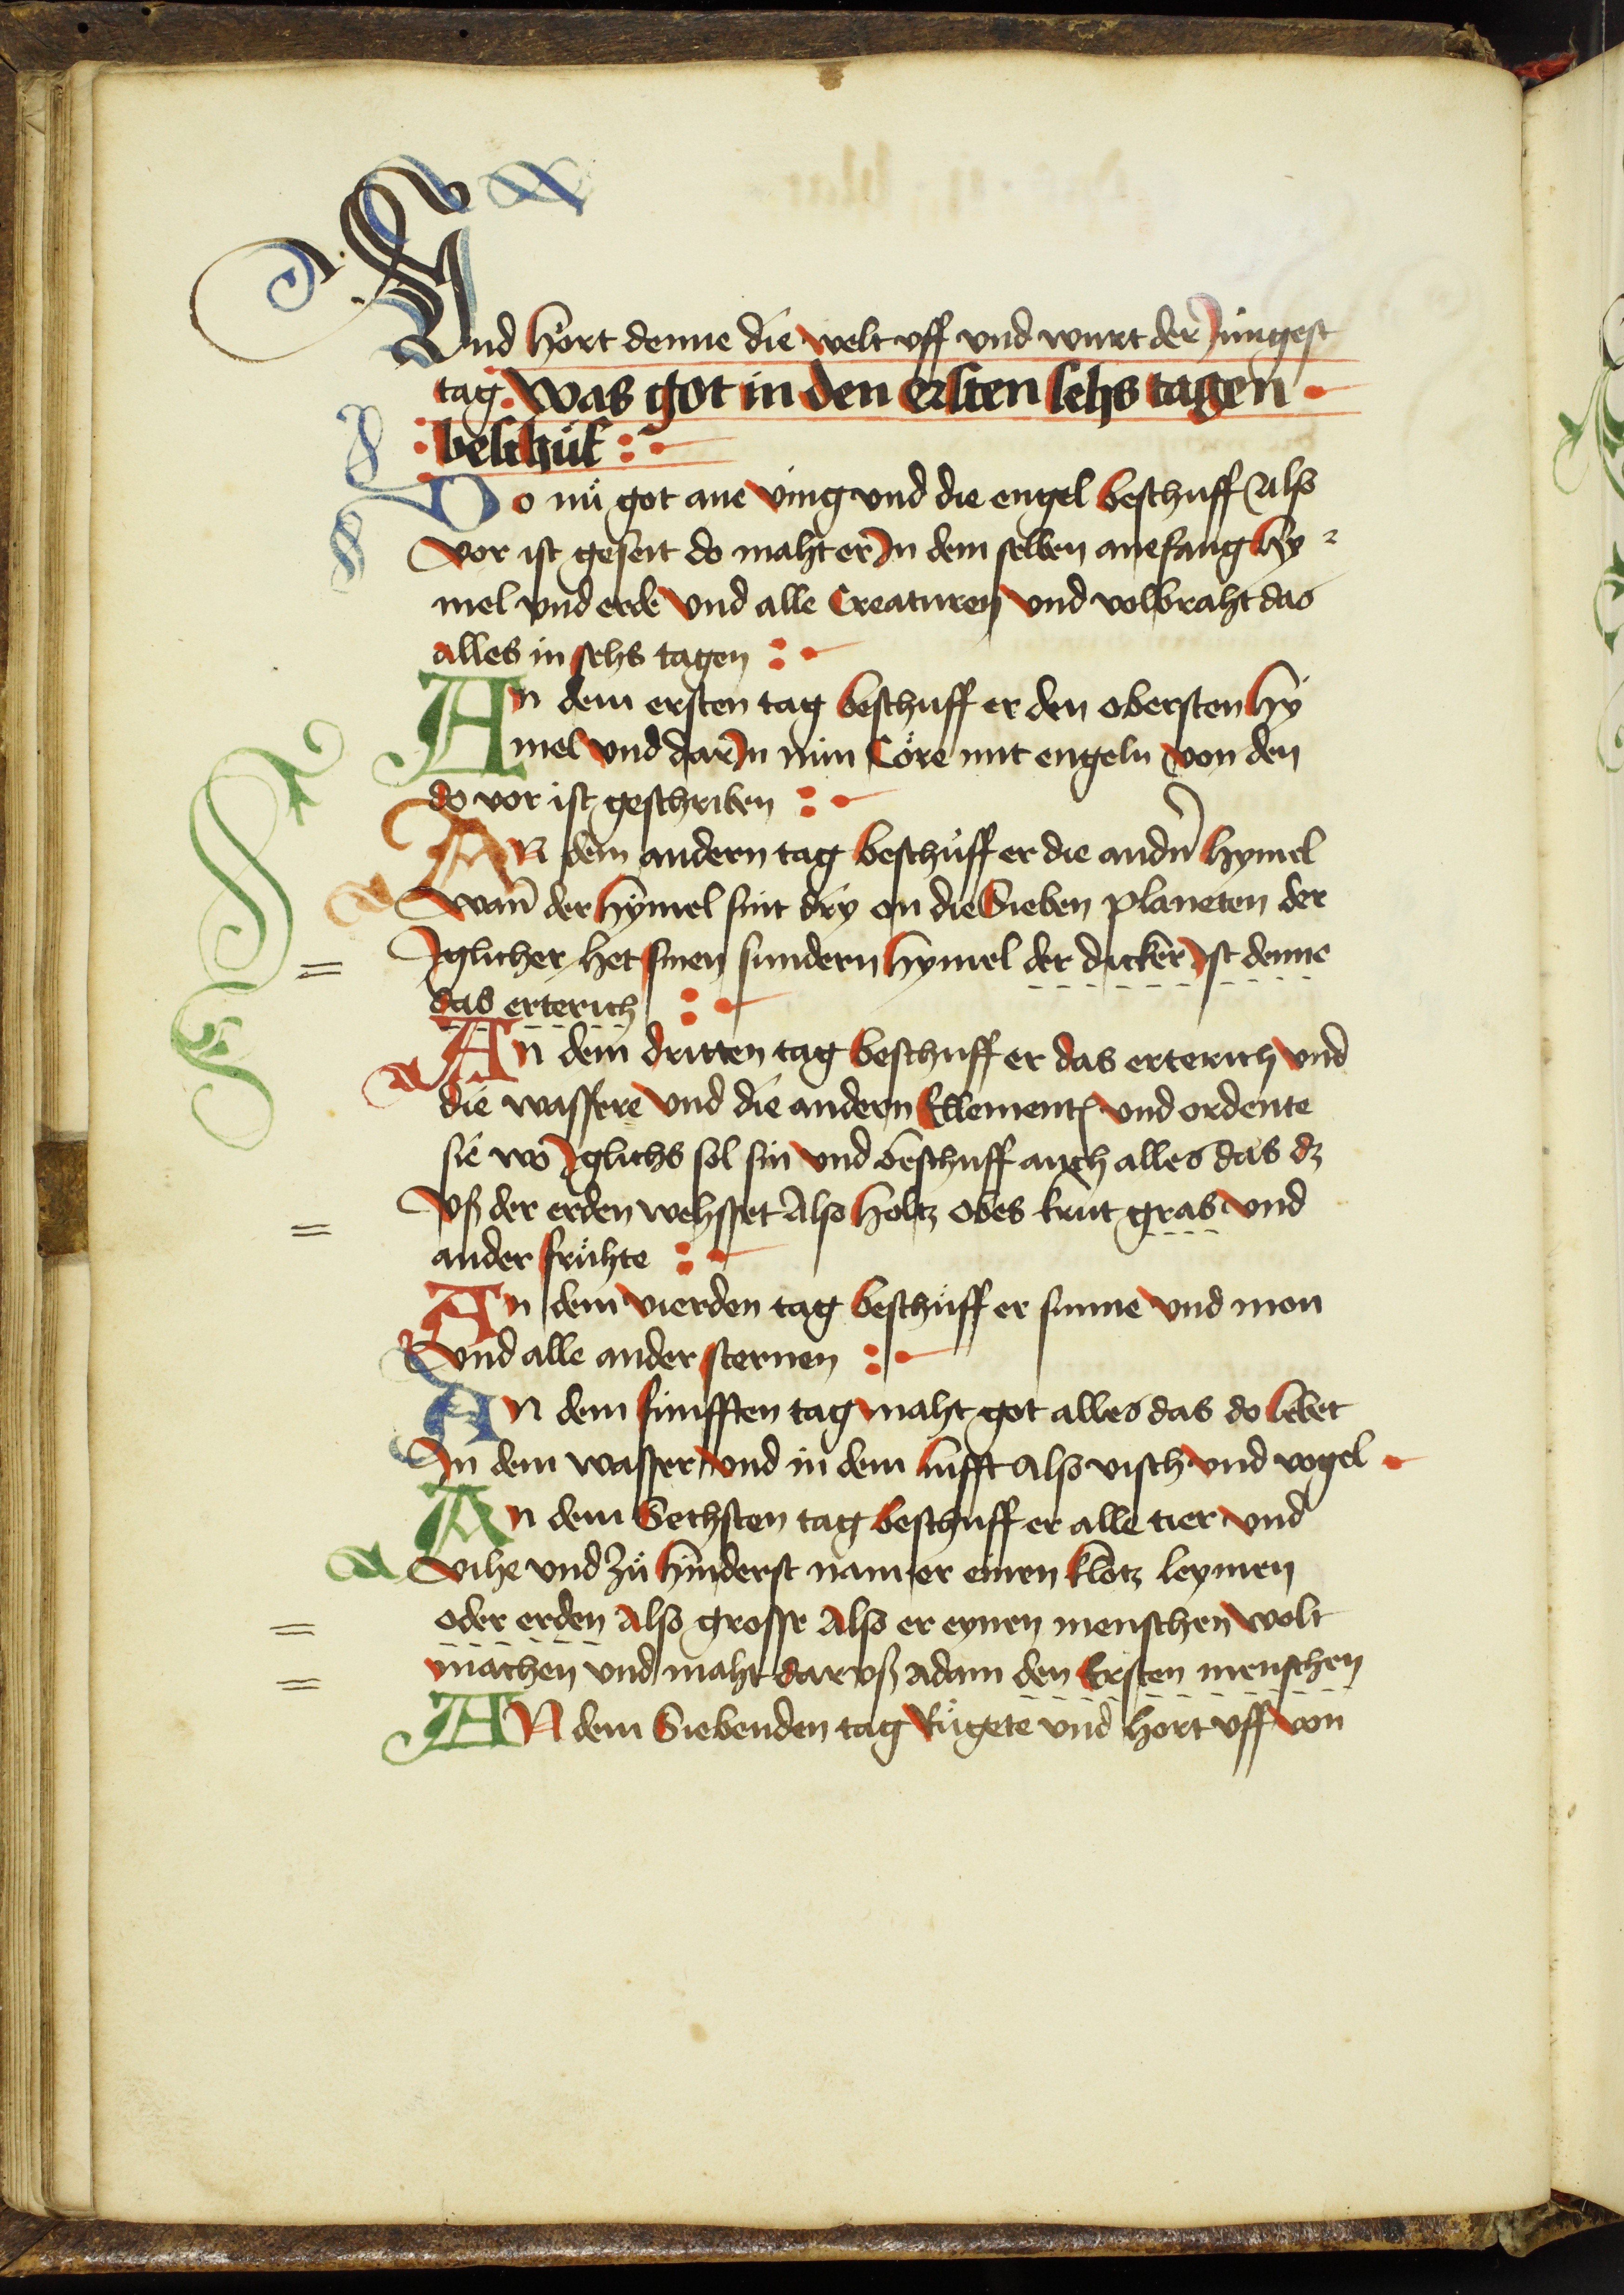 Vnd hört denne die welt vff vnd wurt der Jungest
tag. Was got in den ersten sehs tagen
beschůf
Do nů got ane ving vnd die engel beschuff Also
vor ist geseit do maht er In dem selben anefang hy
mel vnd erde vnd alle Creaturen vnd volbraht das
alles in sehs tagen
An dem ersten tag beschuff er den obersten hy
mel vnd dar In nún Cöre mit engeln von den
do vor ist geschriben
AN dem andern tag beschůff er die andn̄ hymel
Wan̄ der hymel sint dry on die Sieben planeten der
Jglicher het sinen sundern hymel der dicker Jst denne
das erterich
An dem dritten tag beschuff er das erterich vnd
die wassere vnd die andern Ellement vnd ordente
sie wo Jglichs sol sin vnd beschuff auch alles das dz
Vß der erden wehsset Also holtz obes krut gras vnd
ander frühte
An dem vierden tag beschůff er sunne vnd mon
Vnd alle ander sternen
AN dem fúnfften tag maht got alles das do lebet
In dem wasser vnd in dem lufft Also visch vnd vogel
An dem Sechsten tag beschuff er alle tier vnd
Vihe vnd Zů hinderst nam er einen klotz leymen
oder erden Also grosse Also er eynen menschen wolt
machen vnd maht dar vß adam den Ersten menschen
AN dem Siebenden tag Růgete vnd hort vff von